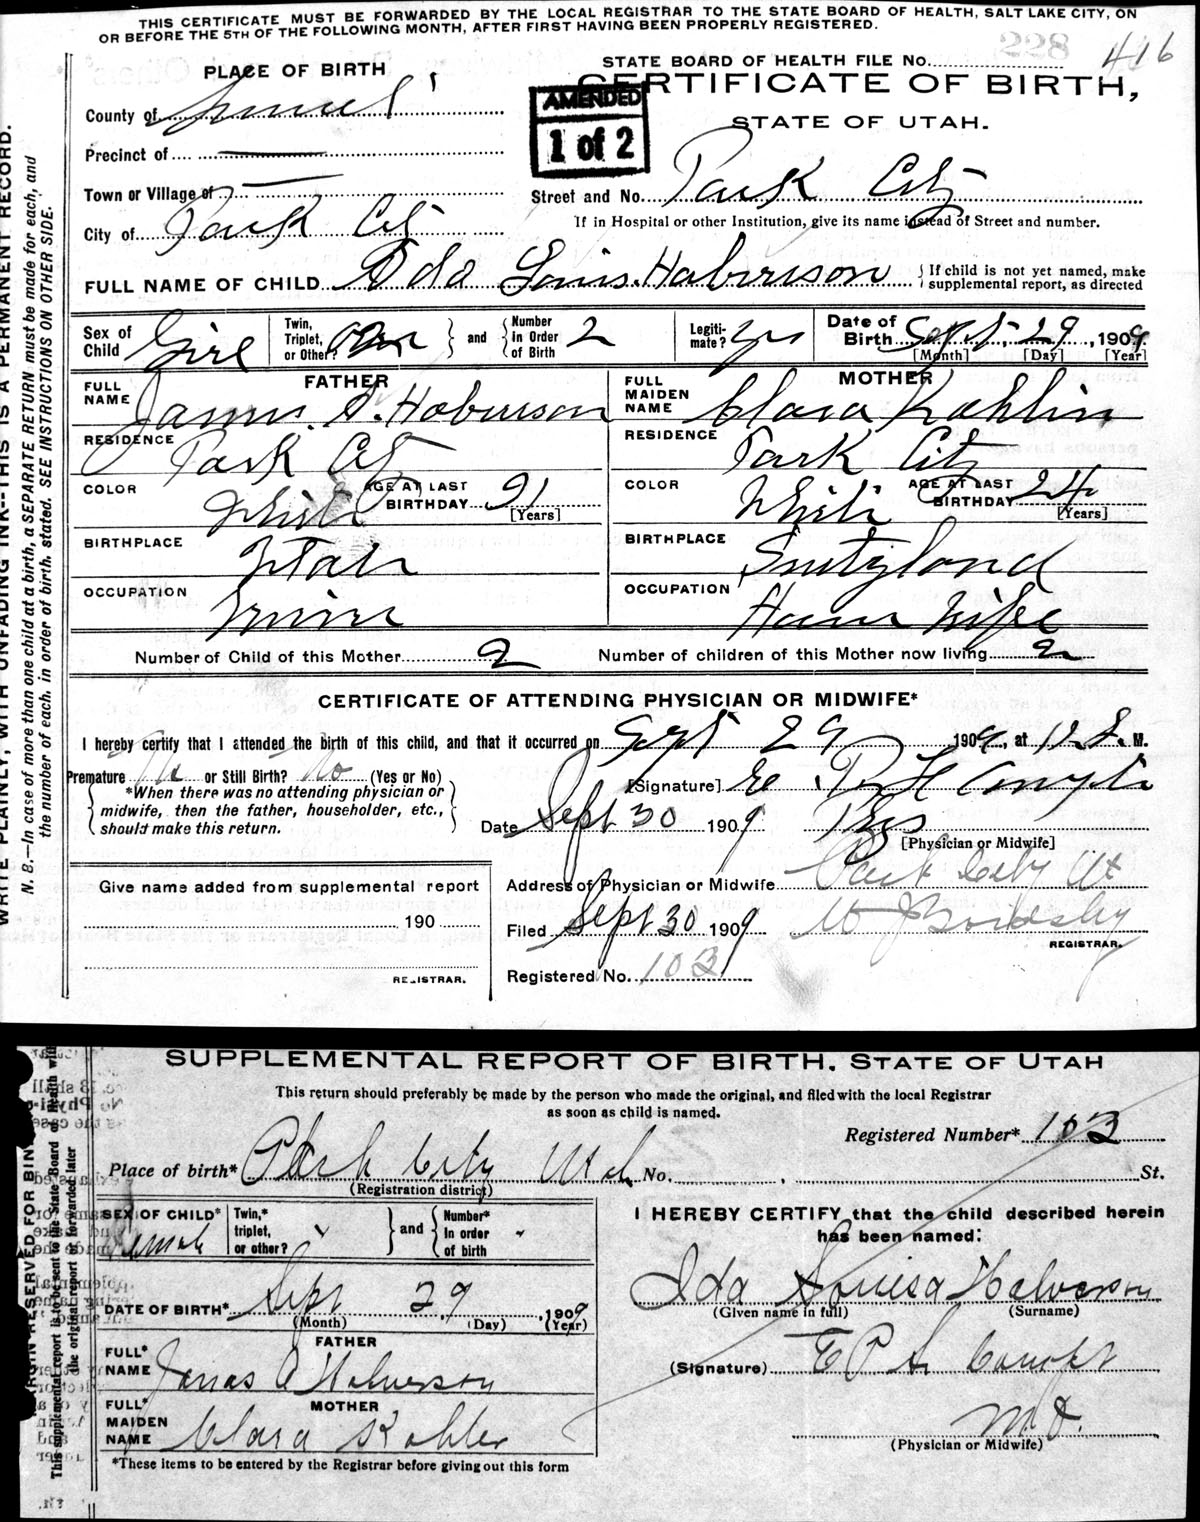 THIS CERTIFICATE MUST BE FORWARDED BY THE LOCAL REGISTRAR TO THE STATE BOARD OF HEALTH, SALT LAKE CITY, ON
OR BEFORE THE 5TH OF THE FOLLOWING MONTH, AFTER FIRST HAVING BEEN PROPERLY REGISTERED.
228
STATE BOARD OF HEALTH FILE No. 416
CERTIFICATE OF BIRTH,
STATE OF UTAH.
AMENDED
1 of 2
PLACE OF BIRTH
County of
Precinct of
Town or Village of
City of Park City
Street and No. Park City
If in Hospital or other Institution, give its name instead of Street and number.
FULL NAME OF CHILD Ida Louis. Halverson
If child is not yet named, make
supplemental report, as directed
Sex of Child Girl
Twin, Triplet, or Other? and Number In Order of Birth 2
Legiti-mate? yes
Date of Birth Sept. 29, 1909
[Month] [Day] [Year]
FATHER
FULL NAME
RESIDENCE Park City
COLOR White AGE AT LAST BIRTHDAY 21 [Years]
BIRTHPLACE Utah
OCCUPATION
MOTHER
FULL MAIDEN NAME Clara
RESIDENCE Park City
COLOR White AGE AT LAST BIRTHDAY 24 [Years]
BIRTHPLACE Switzland
OCCUPATION House Wife
Number of Child of this Mother 2 Number of children of this Mother now living 2
CERTIFICATE OF ATTENDING PHYSICIAN OR MIDWIFE*
I hereby certify that I attended the birth of this child, and that it occurred on Sept 29 1909, at M.
Premature No or Still Birth? No (Yes or No)
[Signature]
*When there was no attending physician or
midwife, then the father, householder, etc.,
should make this return.
Date Sept 30 1909
[Physician or Midwife]
Give name added from supplemental report
190
REGISTRAR.
Address of Physician or Midwife Park City Ut
Filed Sept 30 1909
REGISTRAR.
Registered No. 103
WRITE PLAINLY, WITH UNFADING INK--THIS IS A PERMANENT RECORD.
N. B.—In case of more than one child at a birth, a SEPARATE RETURN must be made for each, and
the number of each, in order of birth, stated. SEE INSTRUCTIONS ON OTHER SIDE.
SUPPLEMENTAL REPORT OF BIRTH. STATE OF UTAH
This return should preferably be made by the person who made the original, and filed with the local Registrar
as soon as child is named.
Registered Number* 103
Place of birth* Park City Utah No. St.
(Registration district)
SEX OF CHILD* Female
Twin,* triplet, or other? and Number* In order of birth
DATE OF BIRTH* Sept 29, 1909
(Month) (Day) (Year)
FATHER
FULL* NAME James A Halverson
MOTHER
FULL* MAIDEN NAME Clara Kohler
*These items to be entered by the Registrar before giving out this form
I HEREBY CERTIFY that the child described herein
has been named:
Ida Louisa Halverson
(Given name in full) (Surname)
(Signature)
M.D.
(Physician or Midwife)
MARGIN RESERVED FOR BIN
This supplemental report is to be sent to the State Board of Health with
the original report if forwarded later